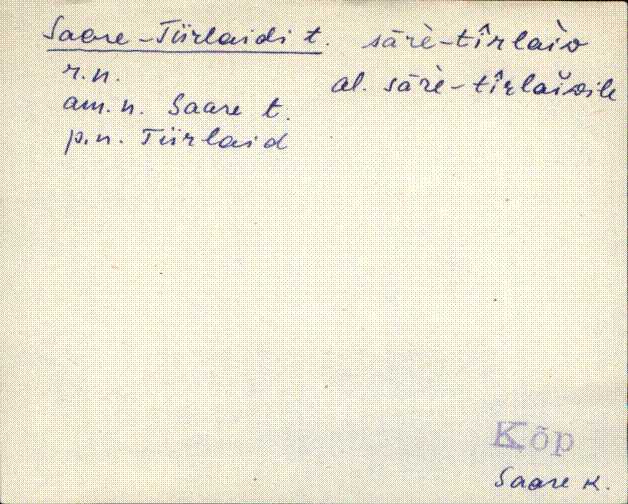 Saare-Tiirlaidi t. sārè-tîrlaìᴅ
r.n. al. sārè-tîrlaĭᴅile
am.n. Saare t.
p.n. Tiirlaid
Kõp
Saare k.